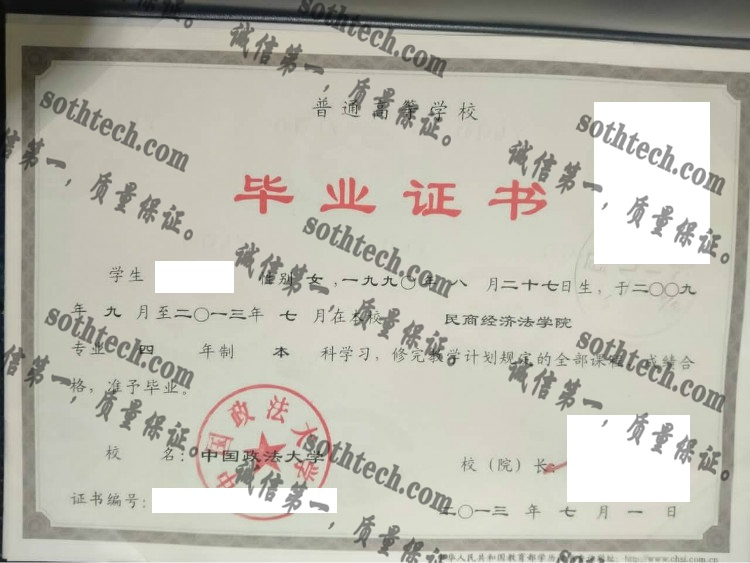 普通高等学校
毕业证书
学生 性别 女,一九九〇年 八 月二十七日生,于二〇〇九
年 九 月至二〇一三年 七 月在本校 民商经济法学院
专业 四 年制 本 科学习,修完教学计划规定的全部课程,成绩合
格,准予毕业。
校 名:中国政法大学
校(院)长:
证书编号:
二〇一三 年 七 月 一 日
中国政法大学
华人民共和国教育部学历 网址:http://www.chsi.com.cn
sothtech.com
诚信第一,质量保证。
sothtech.com
诚信第一,质量保证。
sothtech.com
诚信第一,质量保证。
sothtech.com
诚信第一,质量保证。
sothtech.com
诚信第一,质量保证。
sothtech.com
诚信第一,质量保证。
sothtech.com
诚信第一,质量保证。